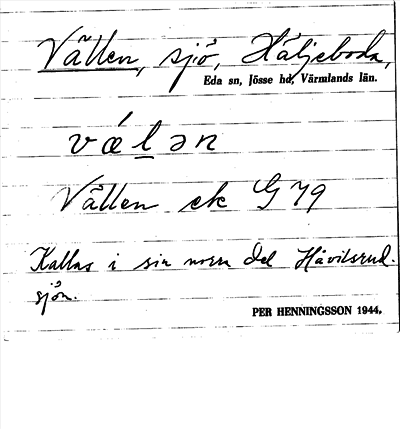 Vällen, sjö, Häljeboda,
Eda sn, Jösse hd, Värmlands län.
vǽlən
Vällen ek G 79
Kallas i sin norra del Håvilsrud-
sjön.
PER HENNINGSSON 1944.